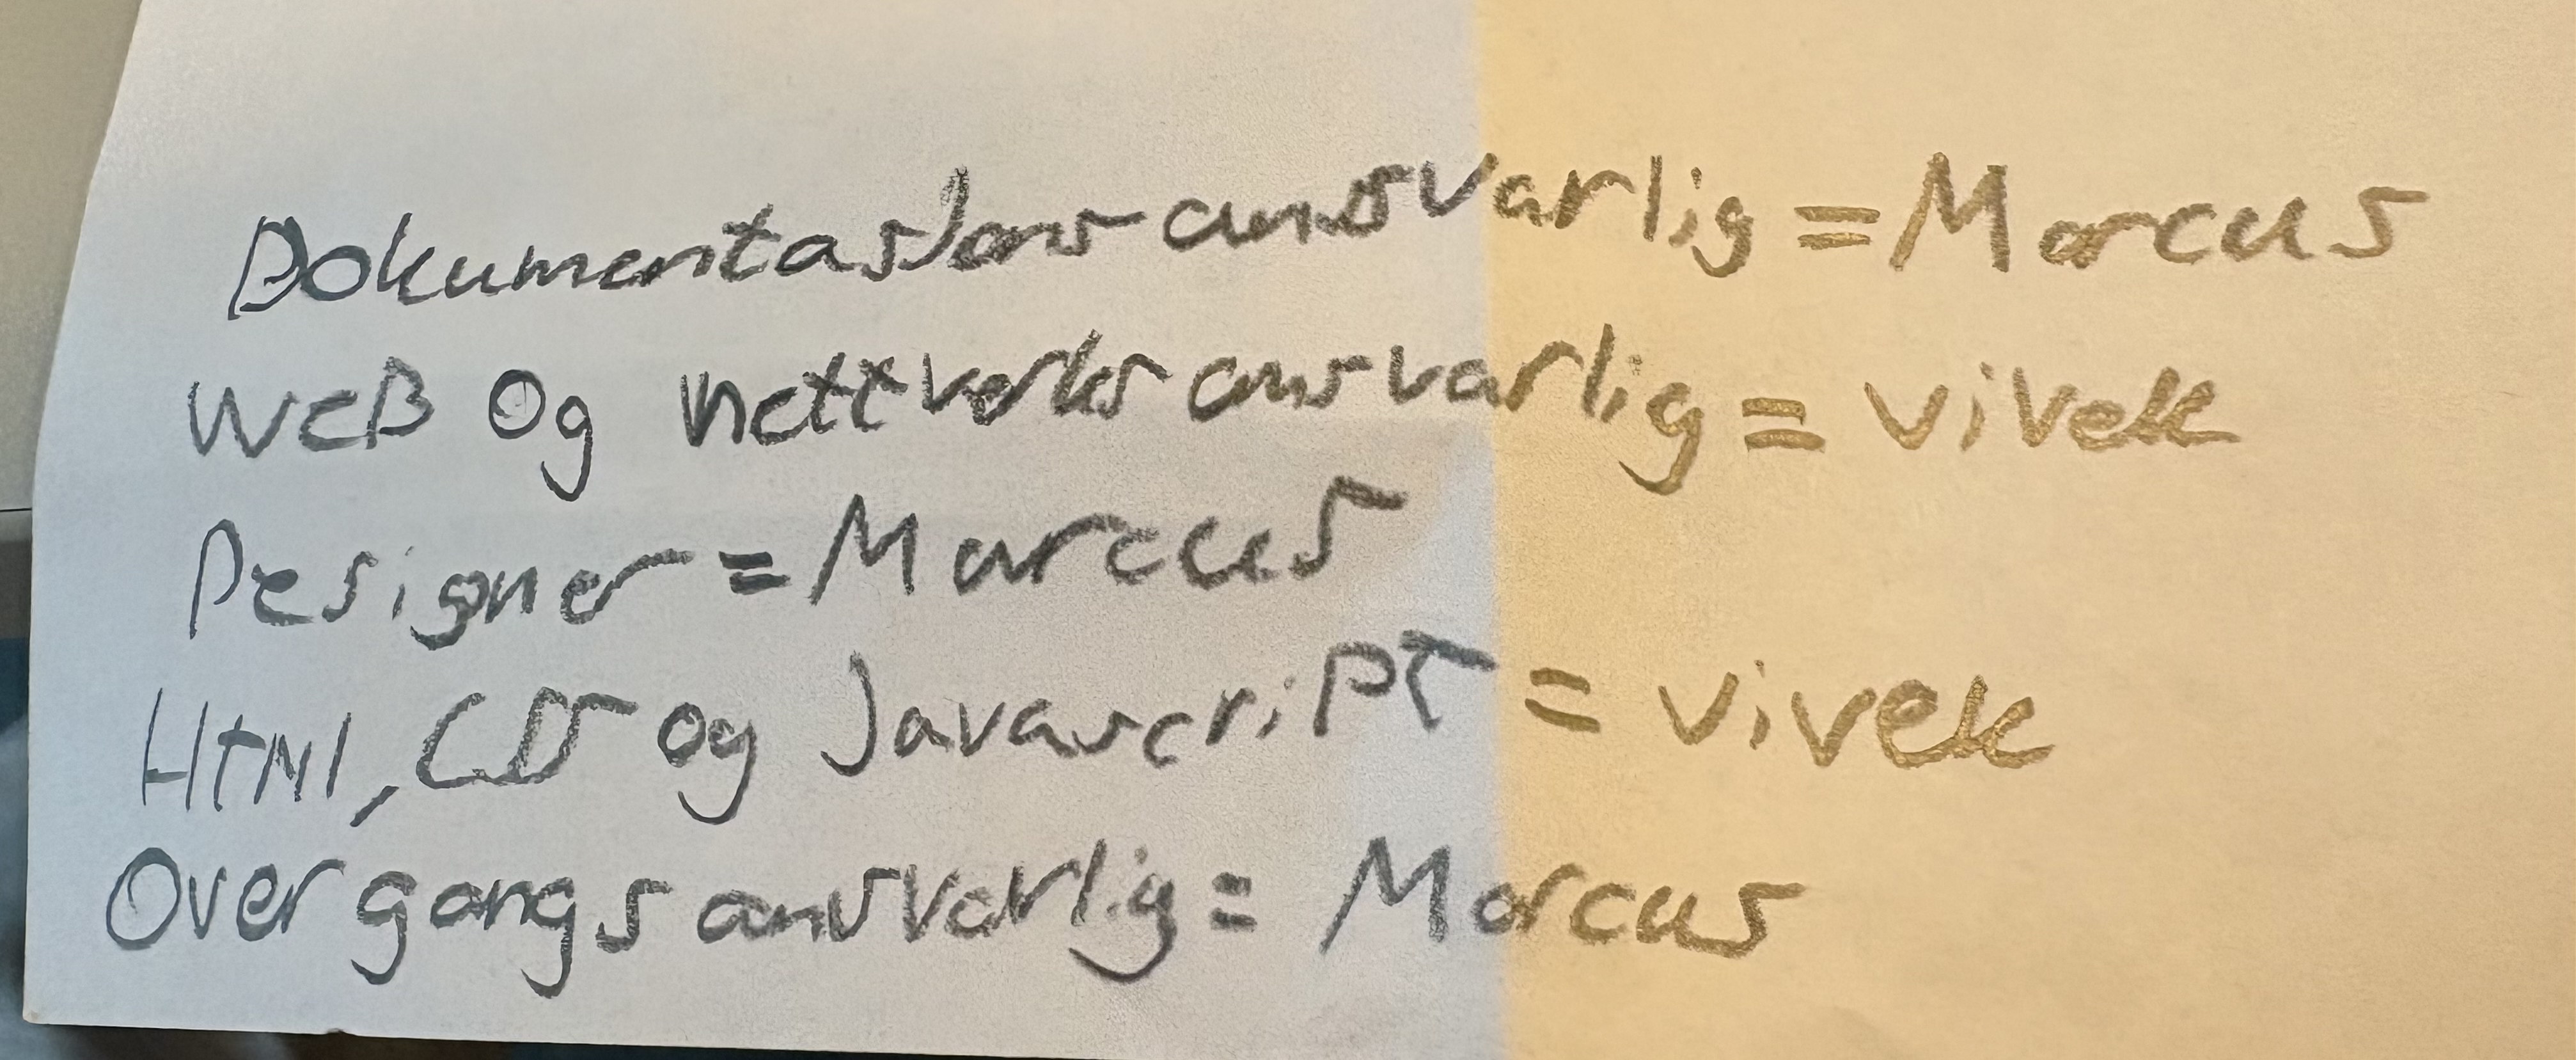 Dokumentasjons ansvarlig = Marcus
WEB Og nettverks ansvarlig = vivek
Designer = Marcus
HtMl, CSS og Javascript = vivek
Overgangs ansvarlig = Marcus